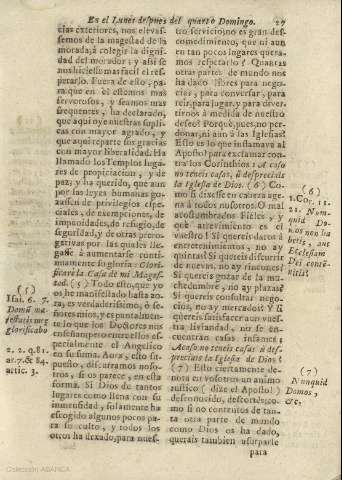 En el Lunes despues del quarto Domingo. 27
cias exteriores, nos elevas-
semos de la magestad de la
morada, à colegir la digni-
dad del morador; y assi se
nos hiziesse mas facil el res-
petarlo. Fuera de esto, pa-
ra que en èl estemos mas
fervorosos, y seamos mas
frequentes, ha declarado,
que aqui oye nuestras suplicas
con mayor agrado, y
que aqui reparte sus gracias
con mayor liberalidad. Ha
llamado los Templos lugares
de propiciacion, y de
paz; y ha querido, que aun
por las leyes humanas gozassen
de privilegios especiales,
de exempciones, de
impunidades, de refugio, de
seguridad, y de otras prerrogativas
por las quales llegasse
à aumentarse continuamente
su gloria: Glorificarè
la Casa de mi Magestad.
(5) Todo esto, que yo
os he manifestado hasta aora,
es verdaderissimo, ò señores
mios, y es puntualmente
lo que los Doctores nos
enseñan, pero entre ellos especialmente
el Angelico
en su Suma. Aora, esto supuesto,
discurramos nosotros,
si os parece, en esta
forma. Si Dios de tantos
lugares como llena con su
inmensidad, solamente ha
escogido algunos pocos para
su culto, y todos los
otros ha dexado, para nues-
tro servicio, no es gran descomedimiento,
que ni aun
en tan pocos lugares queramos
respetarlo? Quantas
otras partes de mundo nos
ha dado libres para negocios,
para conversar, para
reir, para jugar, y para divertirnos
à medida de nuestro
deseo? Porquè, pues, no perdonar,
ni aun à las Iglesias?
Esto es lo que instamava al
Apostol para exclamar contra
los Corinthios: A caso
no teneis casas, ò despreciais
la Iglesia de Dios. (6) Como
si dixesse en cabeza agena
à todos nosotros: O mal
acostumbrados Fieles, y
què atrevimiento es el
vuestro? Si quereis daros à
entretenimientos, no ay
quintas? Si quereis discurrir
de nuevas, no ay rincones?
Si quereis gozar de la muchedumbre,
no ay plazas?
Si quereis consultar negocios,
no ay mercados? Y si
quereis satisfacer aun vuestra
liviandad, no se encuentran
casas infames?
Acaso no teneis casas, ò despreciais
la Iglesia de Dios?
(7) Esto ciertamente denota
en vosotros un animo
(dize el Apostol)
desconocido, descortès; como
si no contentos de tanta
otra parte de mundo
como Dios os ha dado,
querais tambien usurparle
para
(5)
Isai. 6. 7.
Domũ majestatis meæ
glorificabo
2. 2. q. 81.
ar. 7. & 84.
artic. 3.
(6)
1. Cor. 11.
22. Numquid
Domos
non habetis,
aut
Ecclesiam
Dei contemnitis?
(7)
Nunquid
Domos,
&c.
Colección ABANCA